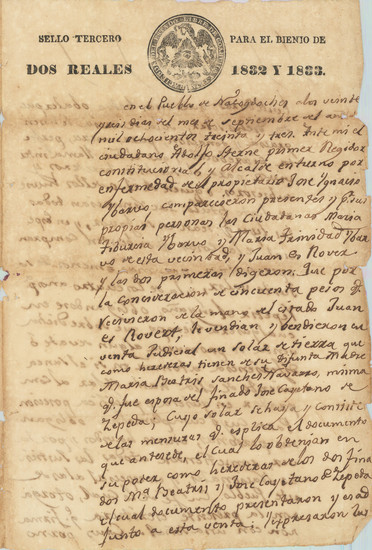 SELLO TERCERO
PARA EL BIENIO DE
DOS REALES
1832 Y 1833.
en el Pueblo de Nacogdoches a los veinte
y seis dias del mes de Septiembre del año
mil ochocientos treinta y tres. Ante mi el
ciudadano Adolfo Sterne primer Regidor
constitucional y Alcalde en turno por
enfermedad del propietario José Ygnacio
Ybarvo, comparecieron presentes y pr. sus
propias personas las Ciudadanas Maria
Ybarvo y Maria Trinidad Ybar
vo de esta vecindad, y Juan
y las dos primeras Digeron: Que por
la de cincuenta pesos q.
recivieron de la mano del citado Juan
vendian y vendieron en
venta Judicial un solar de tierra que
como herederas tienen de su Difunta Madre
Maria Beatris Sanches Navarro, misma
q. fue esposa del finado José Cayetano de
Zepeda; Cuyo solar se halla y
de las mensuras q. esplica el documento
que antesede, el cual lo en
su poder como herederas de los dos fina
dos Ma. Beatris y José Cayetano de Zepeda
el cual documento presentaron y
junto a esta venta; Y espresaron las